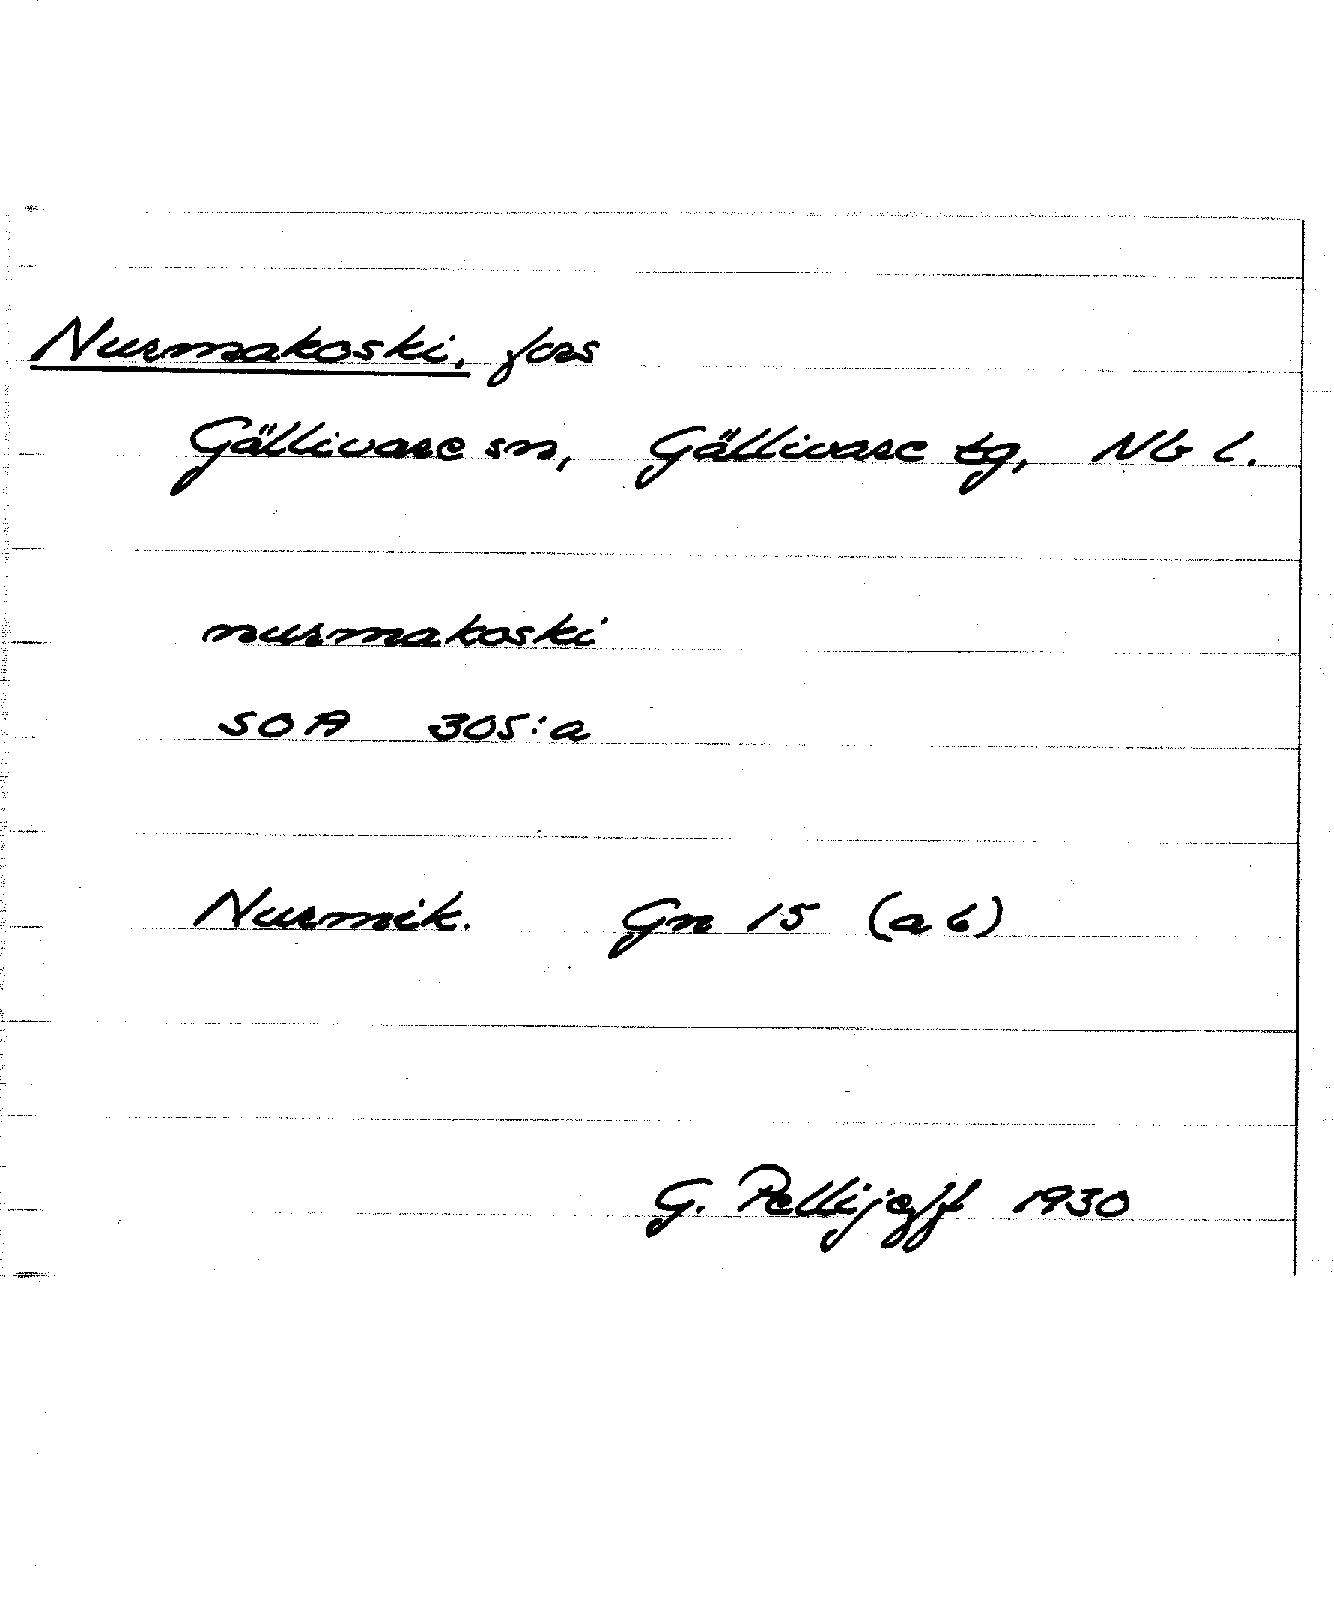 Nurmakoski, fors
Gällivare sn, Gällivare tg, Nb l.
nurmakoski
SOA 305:a
Nurmik. Gn 15 (a b)
G. Pellijeff 1930